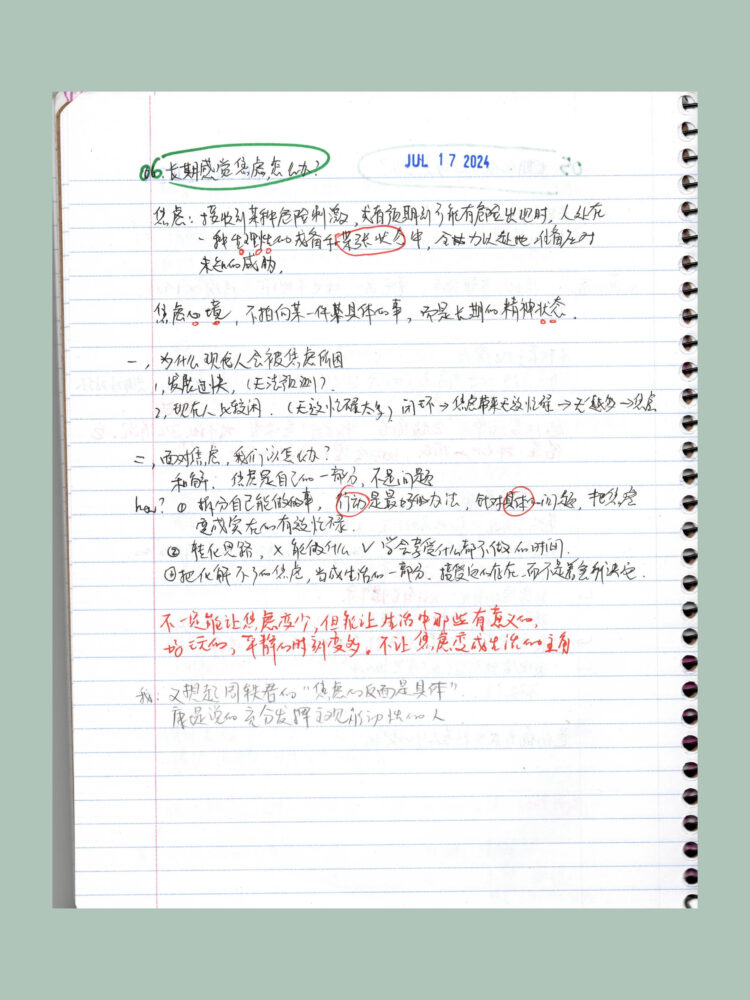 06. 长期感觉焦虑,怎么办?
JUL 17 2024
焦虑: 接收到某种危险刺激, 或者预期到了能有危险出现时, 人处在
一种生理性的戒备和紧张状态中, 令动力以赴地准备应对
未知的威胁.
焦虑心境, 不指向某一件某具体的事, 而是长期的精神状态.
一, 为什么现代人会被焦虑所困
1, 发展过快, (无法预测).
2, 现在人比较闲. (无效忙碌太多) 闭环→焦虑带来无效忙碌→无越多→焦虑
二, 面对焦虑, 我们该怎么办?
和解. 焦虑是自己的一部分, 不是问题
how? ① 拆分自己能做的事, 行动是最好的办法, 针对具体的问题, 把焦虑
变成实在的有效忙碌.
② 转化思路, × 能做什么 ✓ 学会享受什么都不做的时间.
③ 把化解不了的焦虑, 当成生活的一部分. 接受它的存在. 而不是着急解决它.
不一定能让焦虑变少, 但能让生活中那些有意义的,
好玩的, 平静的时刻变多. 不让焦虑变成生活的主角
我: 又想起周轶君的 "焦虑的反面是具体"
康是说的充分发挥主观能动性的人